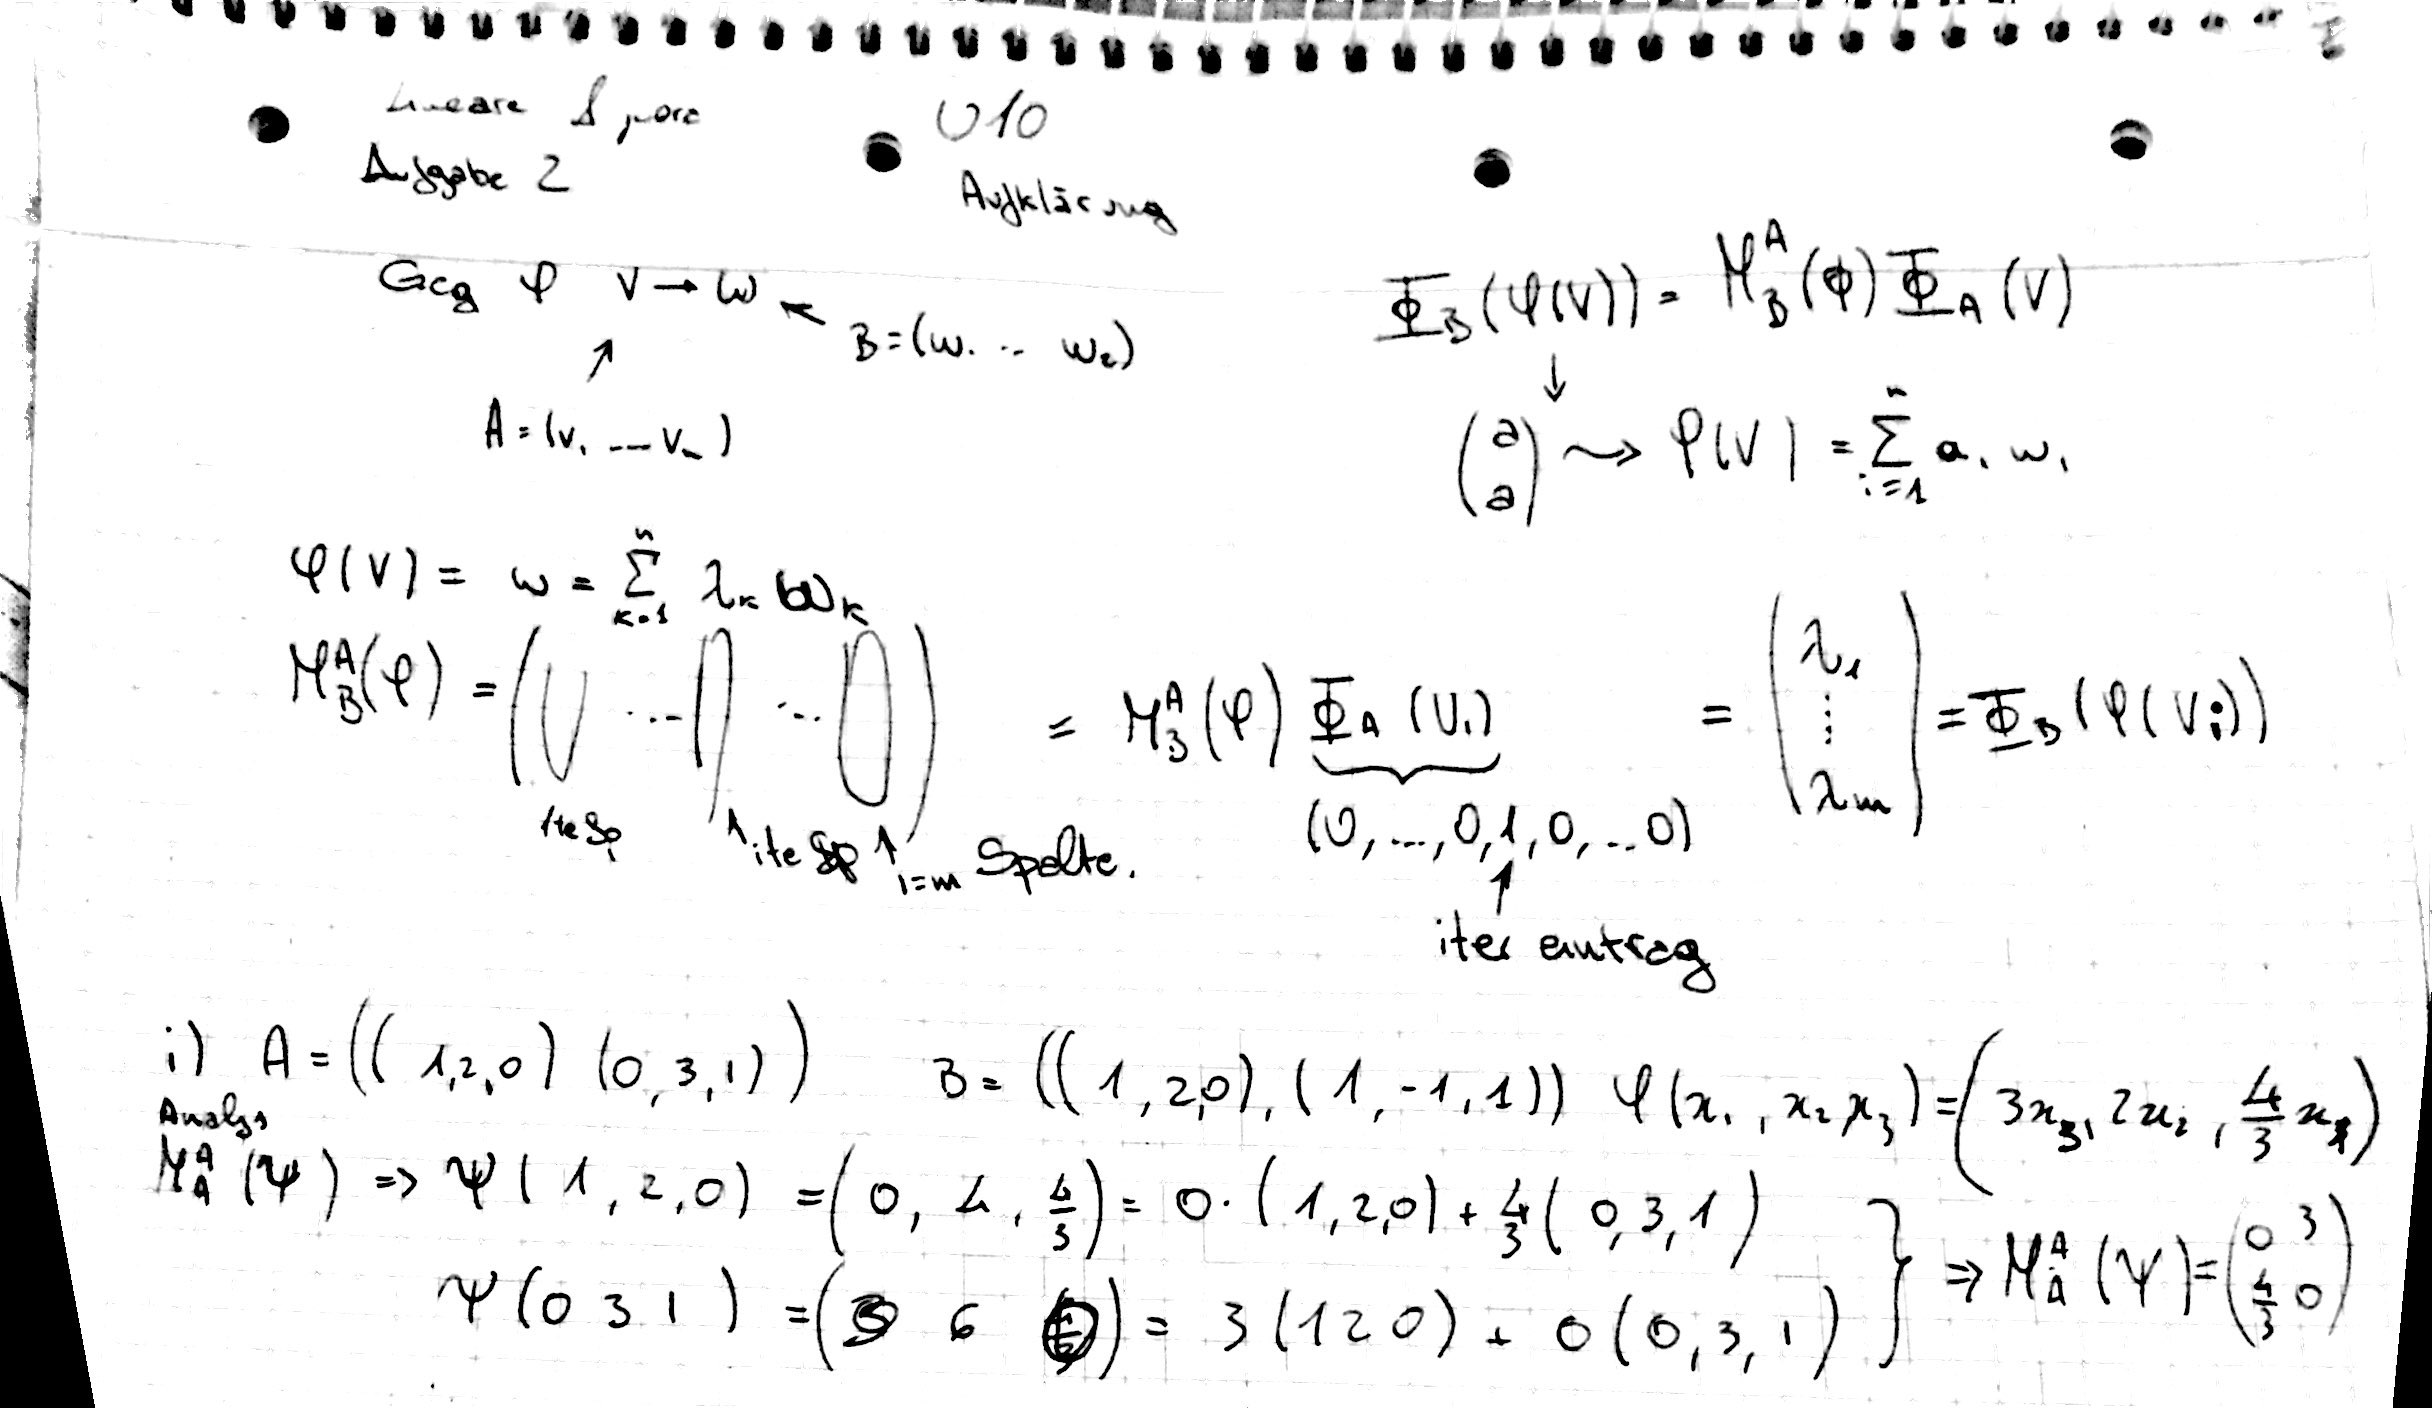 Lineare
U10
Aufgabe 2
Aufklärung
Geg φ V → W
B = (w₁ ... w₂)
A = (v₁ ... vₙ)
Φ_B (φ(V)) = M_B^A (ϕ) Φ_A (V)
↓
(a a) ⇝ φ(V) = Σ_{i=1}^{n} a₁ w₁
φ(V) = w = Σ_{k=1}^{n} λ_k w_k
M_B^A (φ) = ( ... ... ) = M_B^A (φ) Φ_A (V_i) = (λ₁ ⋮ λ_m) = Φ_B (φ(V_i))
1te Sp
ite Sp i=m Spalte.
(0, ..., 0, 1, 0, ... 0)
↑
iter eintrag
i) A = ((1,2,0) (0,3,1)) B = ((1,2,0), (1,-1,1)) φ(x₁, x₂, x₃) = (3x₃, 2x₂, 4/3 x₁)
M_A^A (ψ) ⇒ ψ(1,2,0) = (0, 4, 4/3) = 0·(1,2,0) + 4/3 (0,3,1)
ψ(0 3 1) = (3 6 0) = 3(1 2 0) + 0(0,3,1)
} ⇒ M_A^A (ψ) = (0 3 4/3 0)